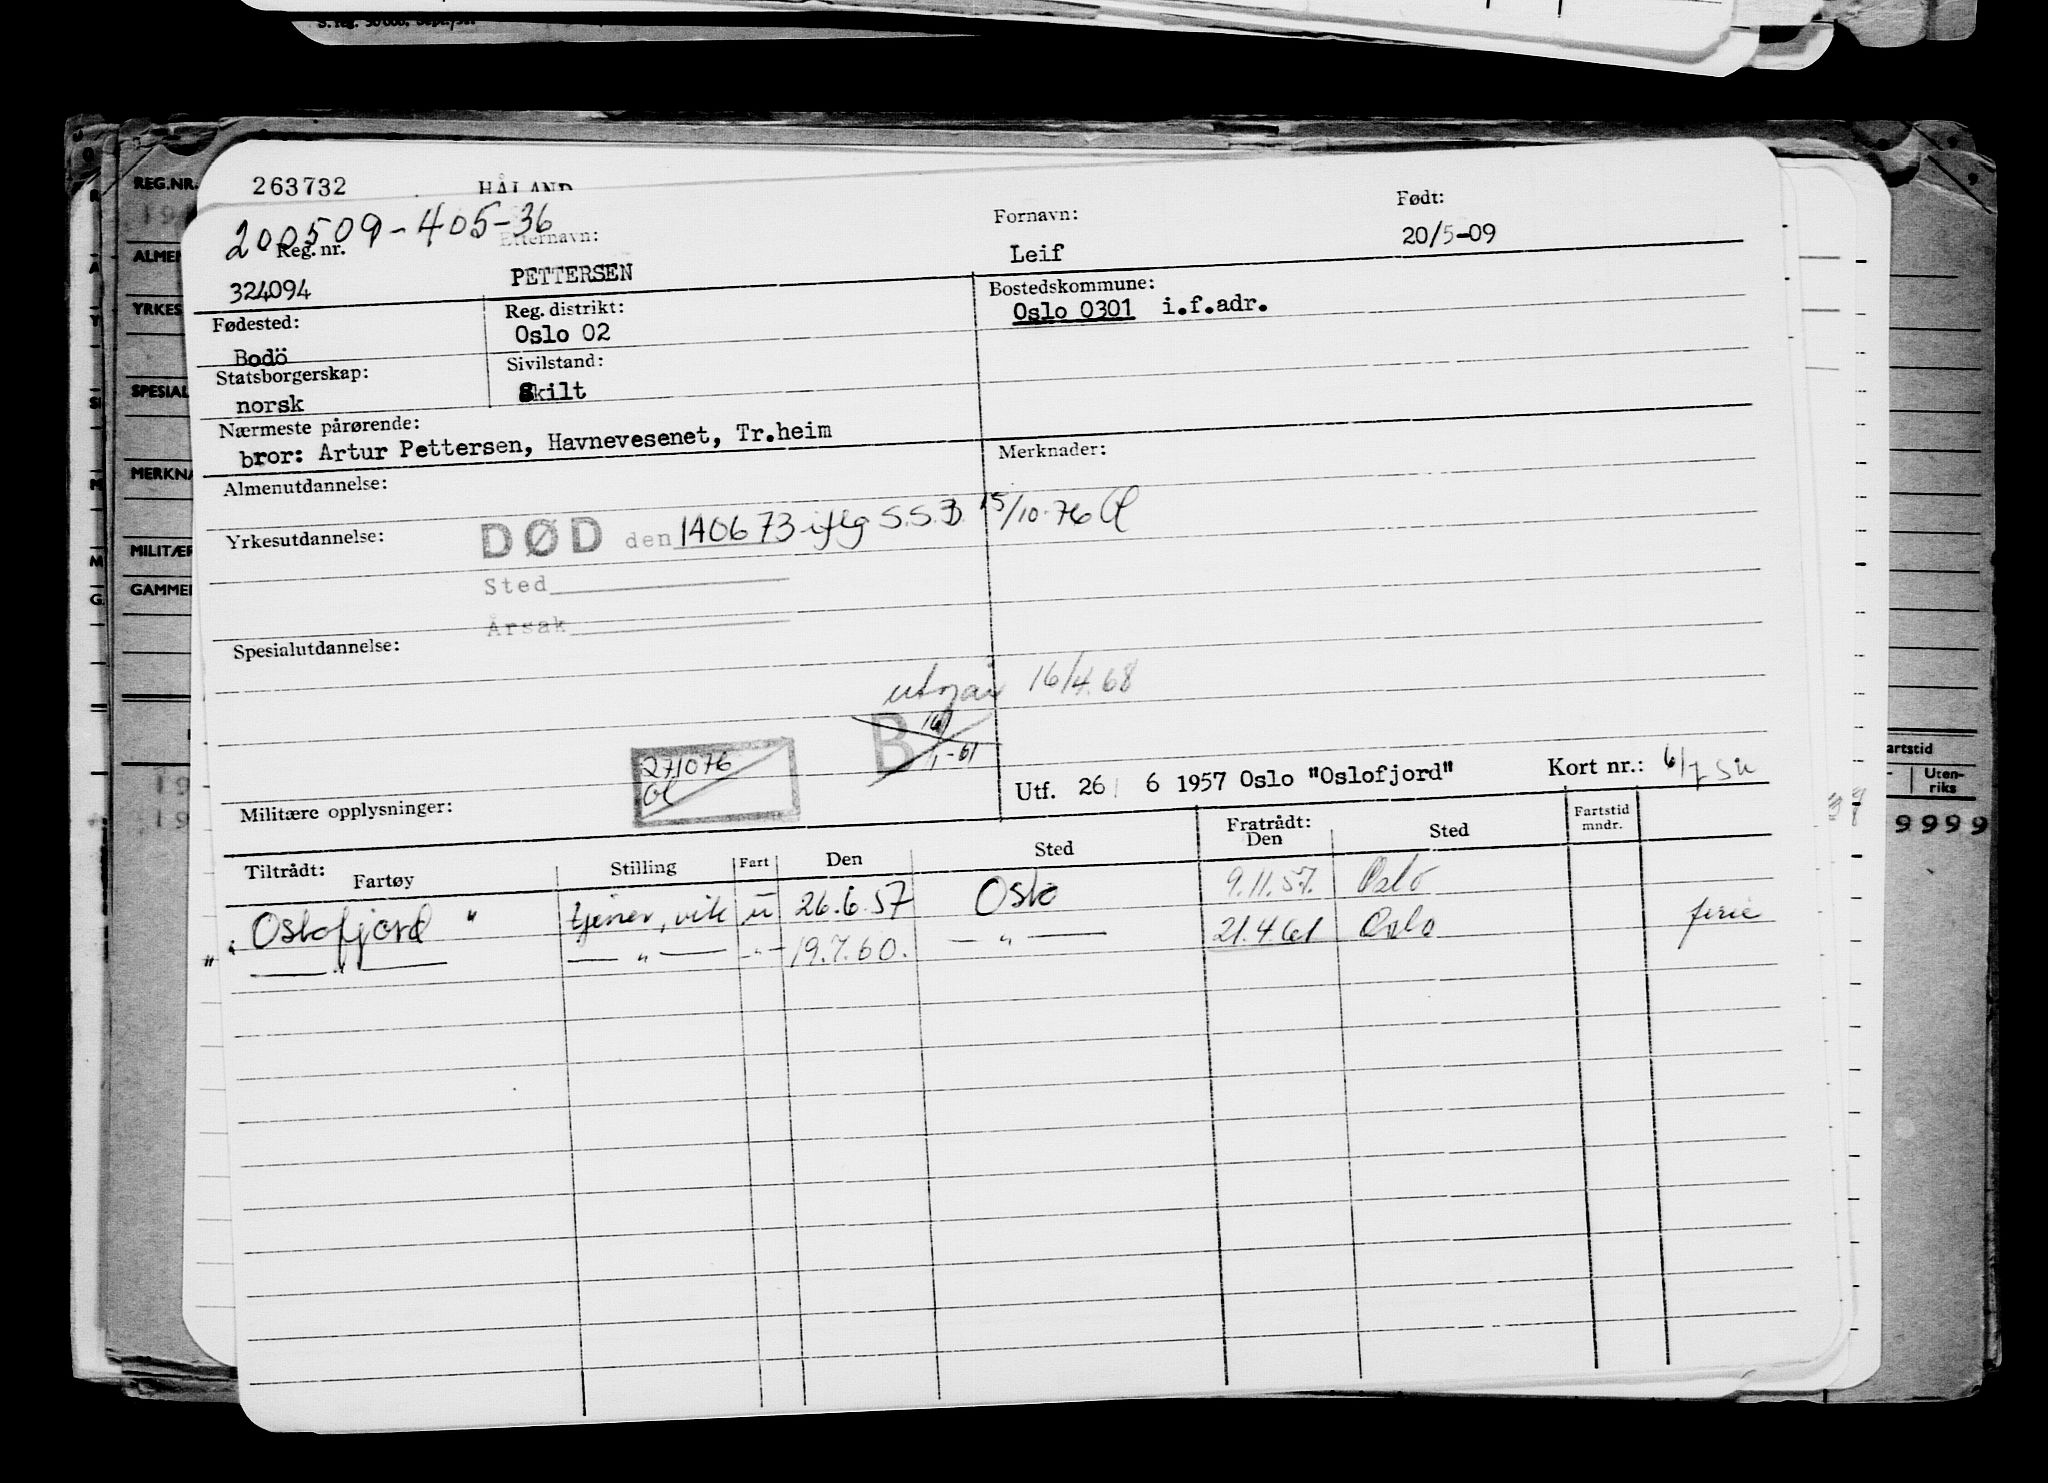 REG.NR.
ALMEN
YRKES
SPESIAL
MERKNA
MILITÆR
GAMMEL
263732 HÅLAND
200509-405-36
Reg. nr. Etternavn: Fornavn: Født:
324094 PETTERSEN Leif 20/5-09
Fødested: Reg. distrikt: Bostedskommune:
Bodö Oslo 02 Oslo 0301 i.f.adr.
Statsborgerskap: Sivilstand:
norsk Skilt
Nærmeste pårørende:
bror: Artur Pettersen, Havnevesenet, Tr.heim
Almenutdannelse: Merknader:
Yrkesutdannelse: DØD den 140673 iflg S.S.B. 15/10-76
Sted
Årsak
Spesialutdannelse:
utgår 16/4.68
B
271076
Militære opplysninger:
Utf. 26/ 6 1957 Oslo "Oslofjord" Kort nr.:
Tiltrådt: Fartøy Stilling Fart Den Sted Fratrådt: Den Sted Fartstid mndr.
"Oslofjord" tjener, vik u 26.6.57 Oslo 9.11.57. Oslo
" — " — — " — - " - 19.7.60. — " — 21.4.61 Oslo ferie
artstid
Uten-
riks
9999